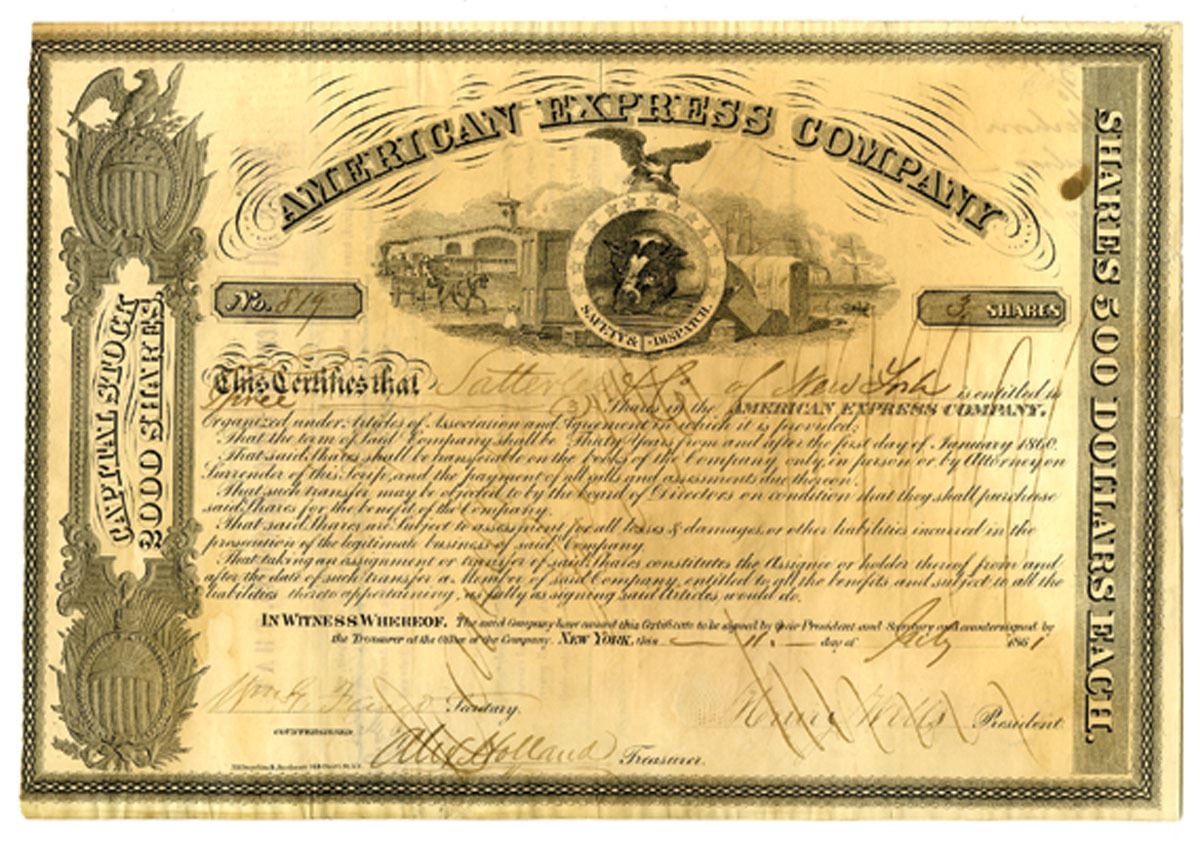 AMERICAN EXPRESS COMPANY
SAFETY & DISPATCH.
No. 819
3 SHARES
CAPITAL STOCK
2000 SHARES
SHARES 500 DOLLARS EACH.
This Certifies that Satterlee & Co of New York is entitled to
Three Shares in the AMERICAN EXPRESS COMPANY.
Organized under Articles of Association and Agreement in which it is provided;
That the term of said Company shall be Thirty Years from and after the first day of January 1860.
That said Shares shall be transferable on the books of the Company only, in person or by Attorney on
Surrender of this Scrip, and the payment of all calls and assessments due thereon.
That such transfer may be objected to by the board of Directors on condition that they shall purchase
said Shares for the benefit of the Company.
That said Shares are Subject to assessment for all losses & damages, or other liabilities incurred in the
prosecution of the legitimate business of said Company.
That taking an assignment or transfer of said Shares constitutes the Assignee or holder thereof from and
after the date of such transfer a Member of said Company, entitled to all the benefits and subject to all the
liabilities thereto appertaining, as fully as signing said Articles, would do.
IN WITNESS WHEREOF. The said Company have caused this Certificate to be signed by their President and Secretary and countersigned by
the Treasurer at the Office of the Company. NEW YORK, this 11 day of July 1861
Wm G. Fargo Secretary.
Henry Wells President
COUNTERSIGNED
Alex Holland Treasurer.